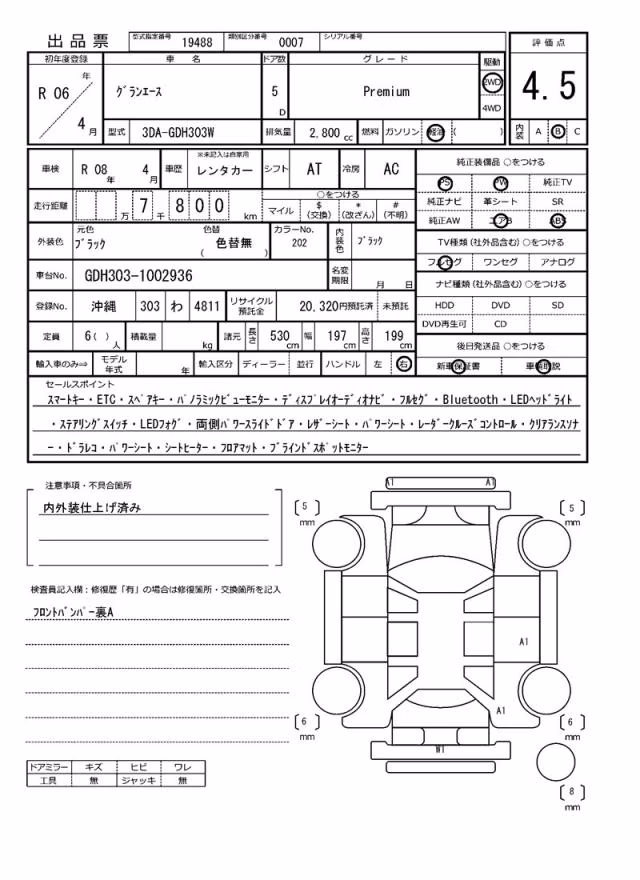 出品票 型式指定番号 19488 類別区分番号 0007 シリアル番号
評価点
初年度登録 車名 ドア数 グレード 駆動
R 06 年 4 月
グランエース
5 D
Premium
2WD
4WD
4.5
型式 3DA-GDH303W 排気量 2,800 cc 燃料 ガソリン 軽油 ( )
内装 A B C
車検 R 08 年 4 月 車歴 ※未記入は自家用 レンタカー シフト AT 冷房 AC
走行距離 万 7 千 8 0 0 km
○をつける
マイル $ (交換) * (改ざん) # (不明)
外装色 元色 ブラック 色替 ( 色替無 ) カラーNo. 202 内装色 ブラック
車台No. GDH303-1002936 名変期限 月 日
登録No. 沖縄 303 わ 4811 リサイクル預託金 20,320円預託済 未預託
定員 6( ) 人 積載量 kg 諸元 長さ 530 cm 幅 197 cm 高さ 199 cm
輸入車のみ⇒ モデル年式 年 輸入区分 ディーラー 並行 ハンドル 左 右
純正装備品 ○をつける
PS PW 純正TV
純正ナビ 革シート SR
純正AW エアB ABS
TV種類 (社外品含む) ○をつける
フルセグ ワンセグ アナログ
ナビ種類 (社外品含む) ○をつける
HDD DVD SD
DVD再生可 CD
後日発送品 ○をつける
新車保証書 車輌取説
セールスポイント
スマートキー・ETC・スペアキー・パノラミックビューモニター・ディスプレイオーディオナビ・フルセグ・Bluetooth・LEDヘッドライト
・ステアリングスイッチ・LEDフォグ・両側パワースライドドア・レザーシート・パワーシート・レーダークルーズコントロール・クリアランスソナ
ー・ドラレコ・パワーシート・シートヒーター・フロアマット・ブラインドスポットモニター
注意事項・不具合箇所
内外装仕上げ済み
検査員記入欄：修復歴「有」の場合は修復箇所・交換箇所を記入
フロントバンパー裏A
ドアミラー キズ ヒビ ワレ
工具 無 ジャッキ 無
A1 A1
5 mm
5 mm
A1
A1
6 mm
6 mm
W1
8 mm